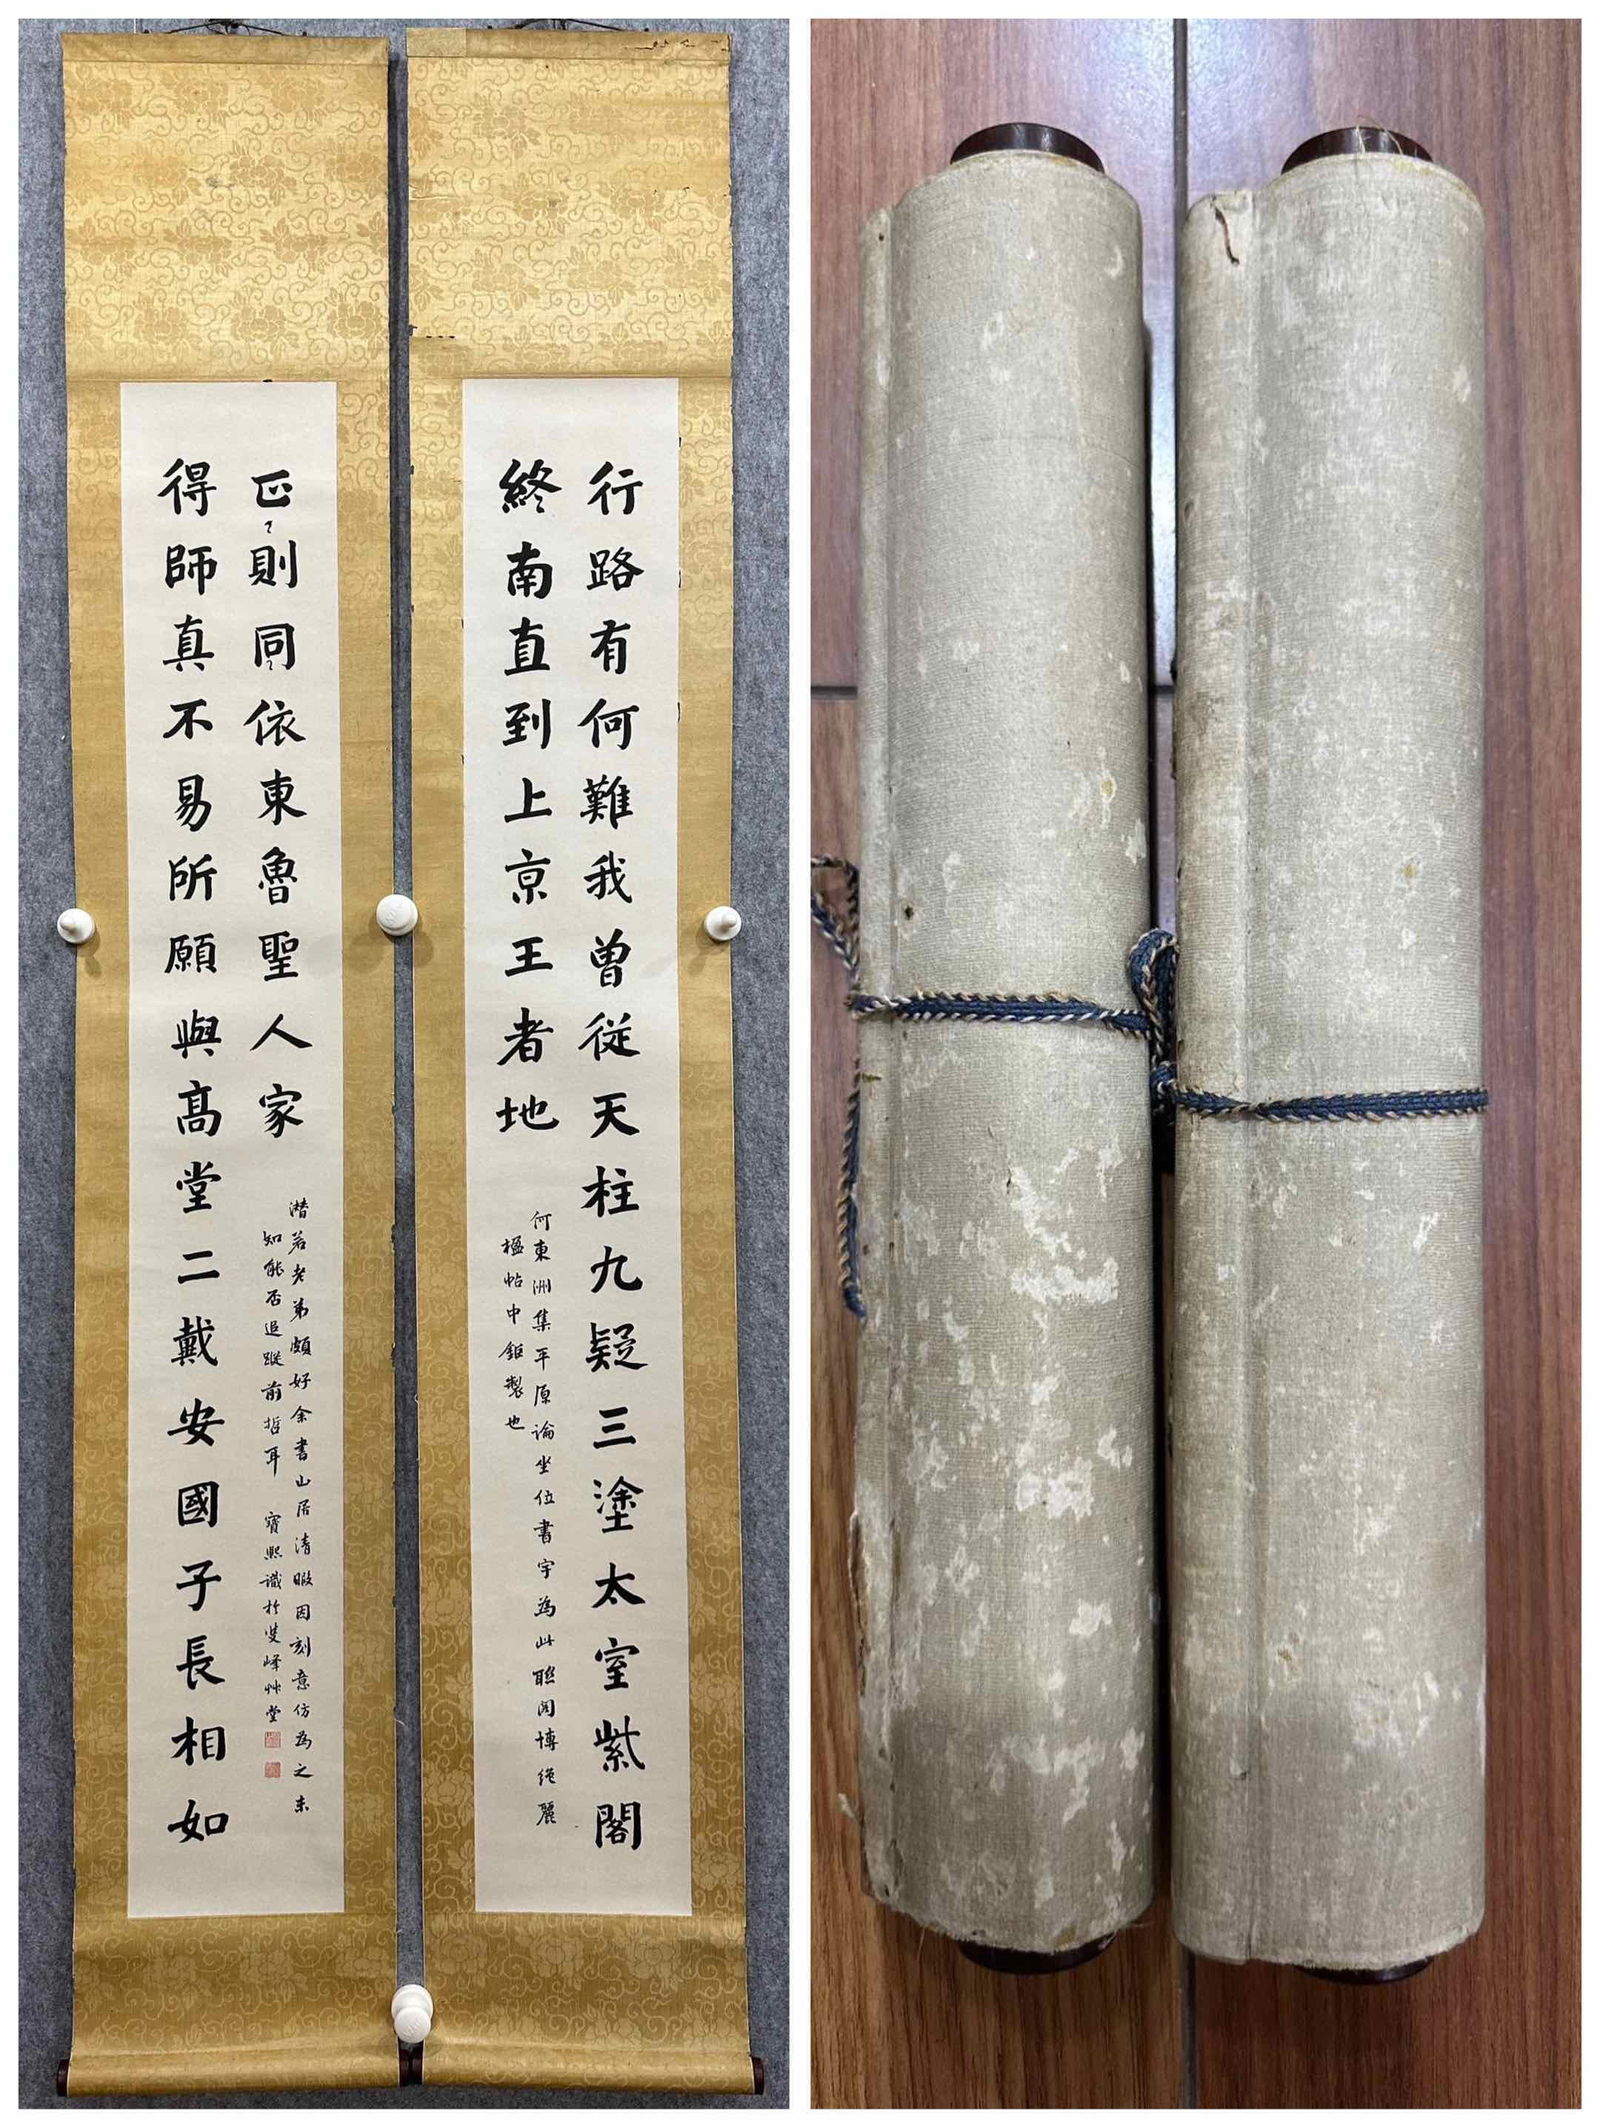 行路有何難我曾從天柱九疑三塗太室紫閣
終南直到上京王者地
何東洲集平原論坐位書字為此聯閎博絕麗
楹帖中鉅製也
得師真不易所願與高堂二戴安國子長相如
正則同依東魯聖人家
濳若老弟頗好余書山居清暇因刻意仿為之未
知能否追蹤前哲耳 寶熙識於雙峰艸堂